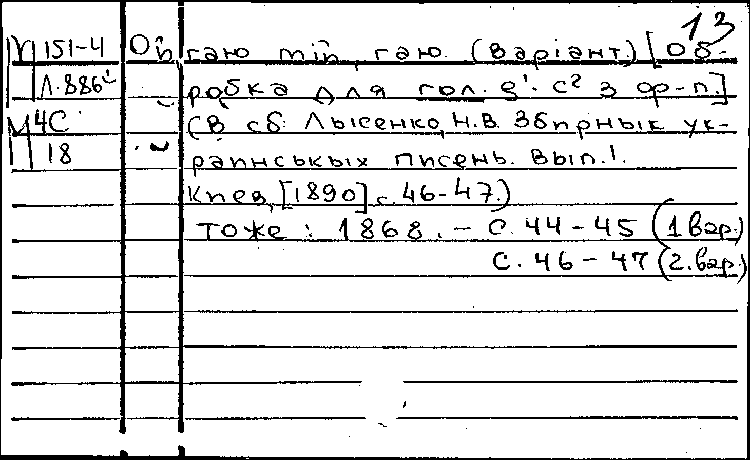 13
М 151-4 Ой гаю мій, гаю. (Варіант) [Об-
Л.886 робка для гол. e¹. c² з ф-п.]
М 4С (В сб. Лысенко, Н.В. Збирнык ук-
18 раинськых писень. Вып. I.
Киев, [1890] с. 46-47.)
тоже: 1868. - С. 44-45 (1 вар.)
С. 46-47 (2. вар.)